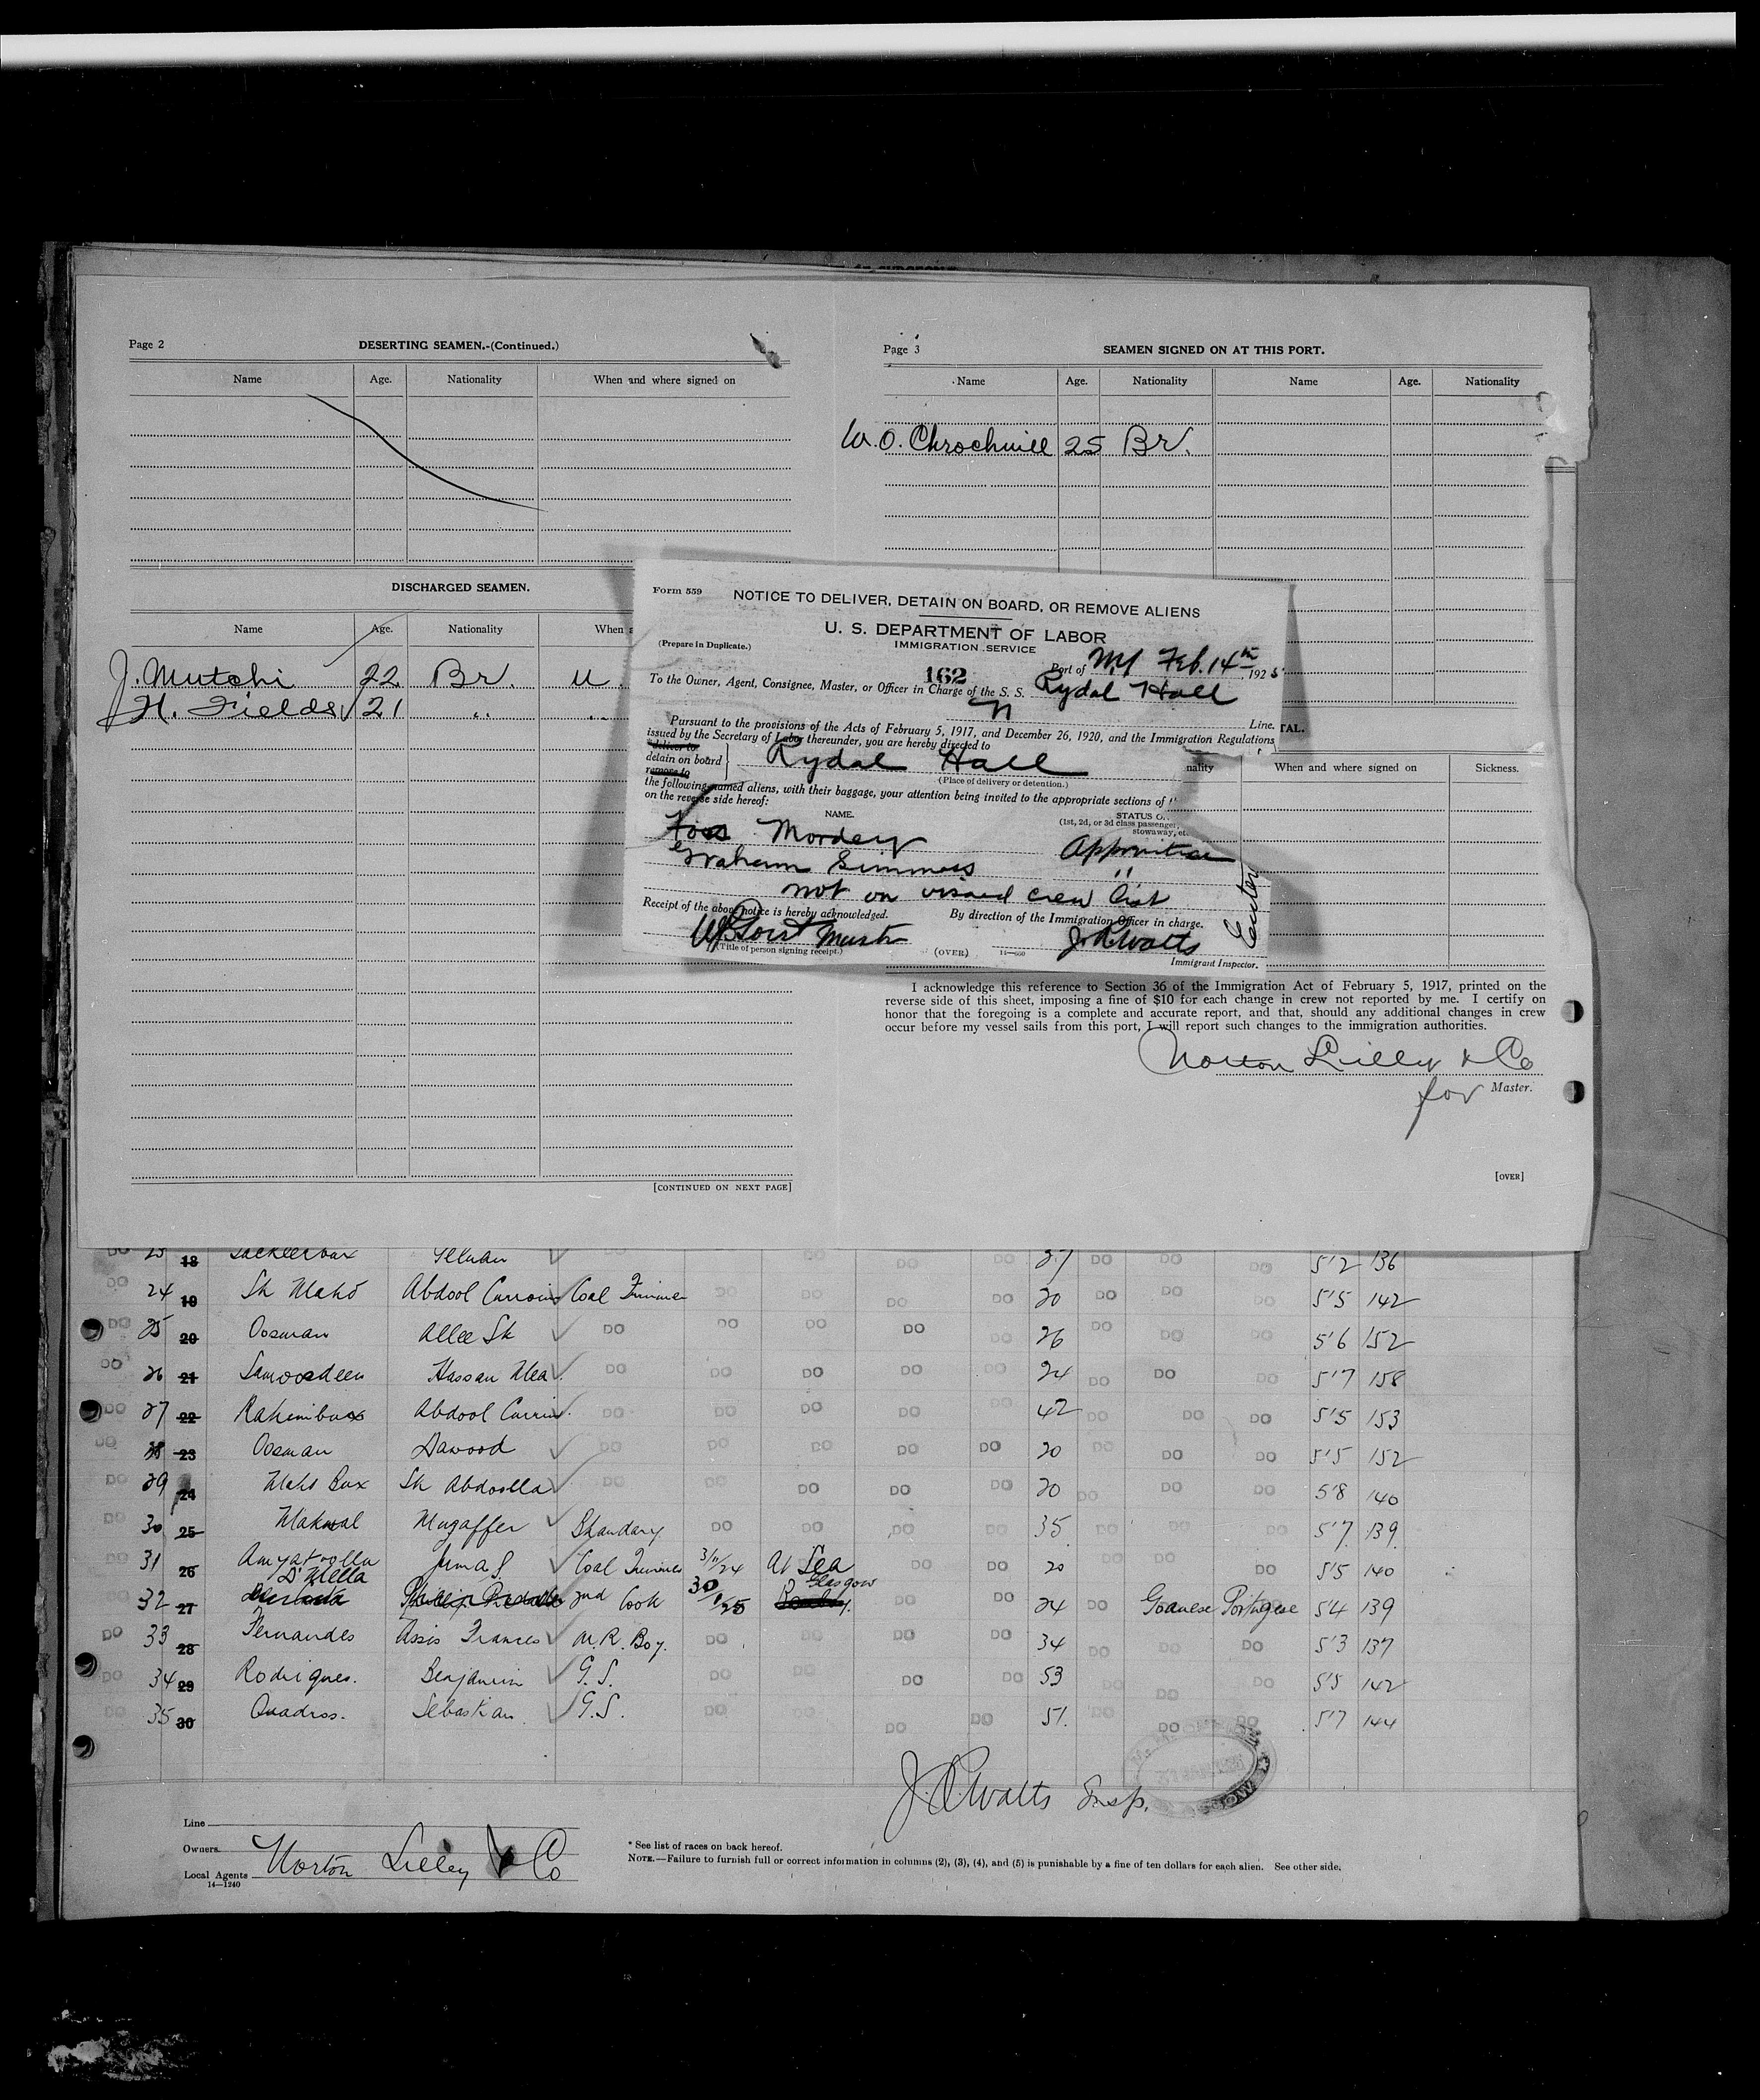 Page 2
DESERTING SEAMEN.-(Continued.)
Name Age. Nationality When and where signed on
DISCHARGED SEAMEN.
Name Age. Nationality When a
J. Mutchi 22 Br. U.
H. Fields 21 " "
[CONTINUED ON NEXT PAGE]
Page 3
SEAMEN SIGNED ON AT THIS PORT.
Name Age. Nationality Name Age. Nationality
W. O. 25 Br.
TAL.
nality When and where signed on Sickness.
I acknowledge this reference to Section 36 of the Immigration Act of February 5, 1917, printed on the
reverse side of this sheet, imposing a fine of $10 for each change in crew not reported by me. I certify on
honor that the foregoing is a complete and accurate report, and that, should any additional changes in crew
occur before my vessel sails from this port, I will report such changes to the immigration authorities.
Norton Lilly & Co
for Master.
[OVER]
Form 559
NOTICE TO DELIVER, DETAIN ON BOARD, OR REMOVE ALIENS
U. S. DEPARTMENT OF LABOR
IMMIGRATION SERVICE
(Prepare in Duplicate.)
162
Port of NY Feb. 14th, 1925
To the Owner, Agent, Consignee, Master, or Officer in Charge of the S. S. Rydal Hall
Line.
Pursuant to the provisions of the Acts of February 5, 1917, and December 26, 1920, and the Immigration Regulations
issued by the Secretary of Labor thereunder, you are hereby directed to
deliver to
detain on board Rydal Hall
remove to
(Place of delivery or detention.)
the following-named aliens, with their baggage, your attention being invited to the appropriate sections of
on the reverse side hereof:
NAME. STATUS O
(1st, 2d, or 3d class passenger,
stowaway, etc
Mordey Apprentice
Graham Simmess "
not on visaed crew list
Receipt of the above notice is hereby acknowledged. By direction of the Immigration Officer in charge.
Master J. R. Watts
(Title of person signing receipt.) (OVER) 14—560 Immigrant Inspector.
23 18 27 DO DO DO 5'2 136
DO 24 19 Sk Mahd Abdool Coal Trimmer DO DO DO DO 20 DO DO DO 5'5 142
DO 25 20 Oosman Allee Sk DO DO DO DO DO 26 DO DO DO 5'6 152
DO 26 21 Samoodeen Hassan Alea DO DO DO DO DO 24 DO DO DO 5'7 158
DO 27 22 Rahimbux Abdool Currim DO DO DO DO DO 42 DO DO DO 5'5 153
DO 28 23 Oosman Dawood DO DO DO DO DO 20 DO DO DO 5'5 152
DO 29 24 Mahd Bux Sk Abdoolla DO DO DO DO DO 20 DO DO DO 5'8 140
DO 30 25 Makwal Mugaffer Bhandary DO DO DO DO 35 DO DO DO 5'7 139
DO 31 26 Amyatoolla Juma S. Coal Trimmer 3/11/24 At Sea DO DO 20 DO DO DO 5'5 140
32 27 D'Mella 2nd Cook 30/1/25 Glasgow DO DO 24 DO Goanese Portugese 5'4 139
DO 33 28 Fernandes Assis Frances M. R. Boy. DO DO DO DO 34 DO DO DO 5'3 137
DO 34 29 Rodrigues. Benjamin G. S. DO DO DO DO 53 DO DO DO 5'5 142
DO 35 30 Quadros. Sebastian G. S. DO DO DO DO 51. DO DO DO 5'7 144
J. R. Watts Insp.
Line
Owners
Local Agents Norton Lilley & Co
14—1240
* See list of races on back hereof.
NOTE.—Failure to furnish full or correct information in columns (2), (3), (4), and (5) is punishable by a fine of ten dollars for each alien. See other side.